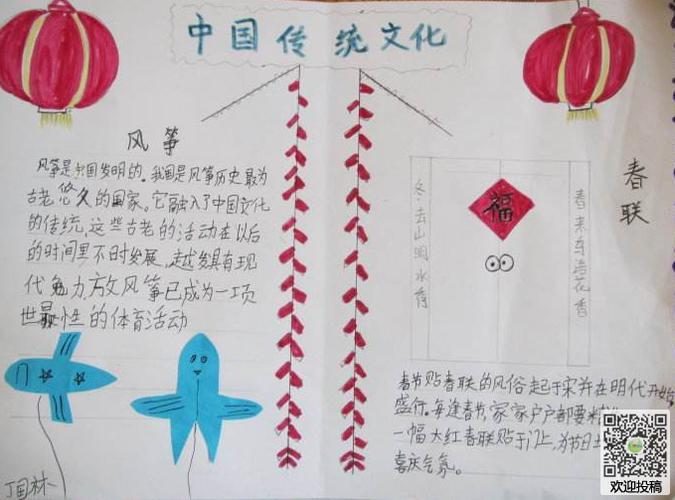 中国传统文化
风筝
风筝是中国发明的。我国是风筝历史最为
古老悠久的国家。它融入了中国文化
的传统,这些古老的活动在以后
的时间里不时发展,越发具有现
代魅力,放风筝已成为一项
世界性的体育活动
丁国林
春联
冬去山明水秀
福
春来鸟语花香
春节贴春联的风俗起于宋并在明代开始
盛行。每逢春节,家家户户都要
一幅大红春联贴于门上,为节日
喜庆气氛。
欢迎投稿